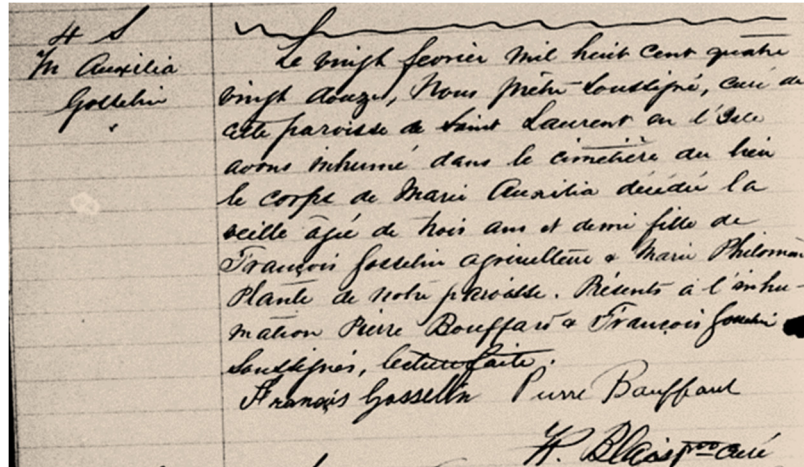 4 S
M Auxilia
Gosselin
Le vingt fevrier mil huit cent quatre
vingt douze, Nous prêtre soussigné, curé de
cette paroisse de Saint Laurent en l'Isle
avons inhumé dans le cimetière du lieu
le corps de Marie Auxilia décédée la
veille agée de trois ans et demi fille de
François Gosselin agriculteur & Marie Philomène
Plante de notre paroisse. Présents à l'inhu-
mation Pierre Bouffard & François Gosselin
soussignés, lecture faite.
Francis Gosselin Pierre Bouffard
Blais ptre curé